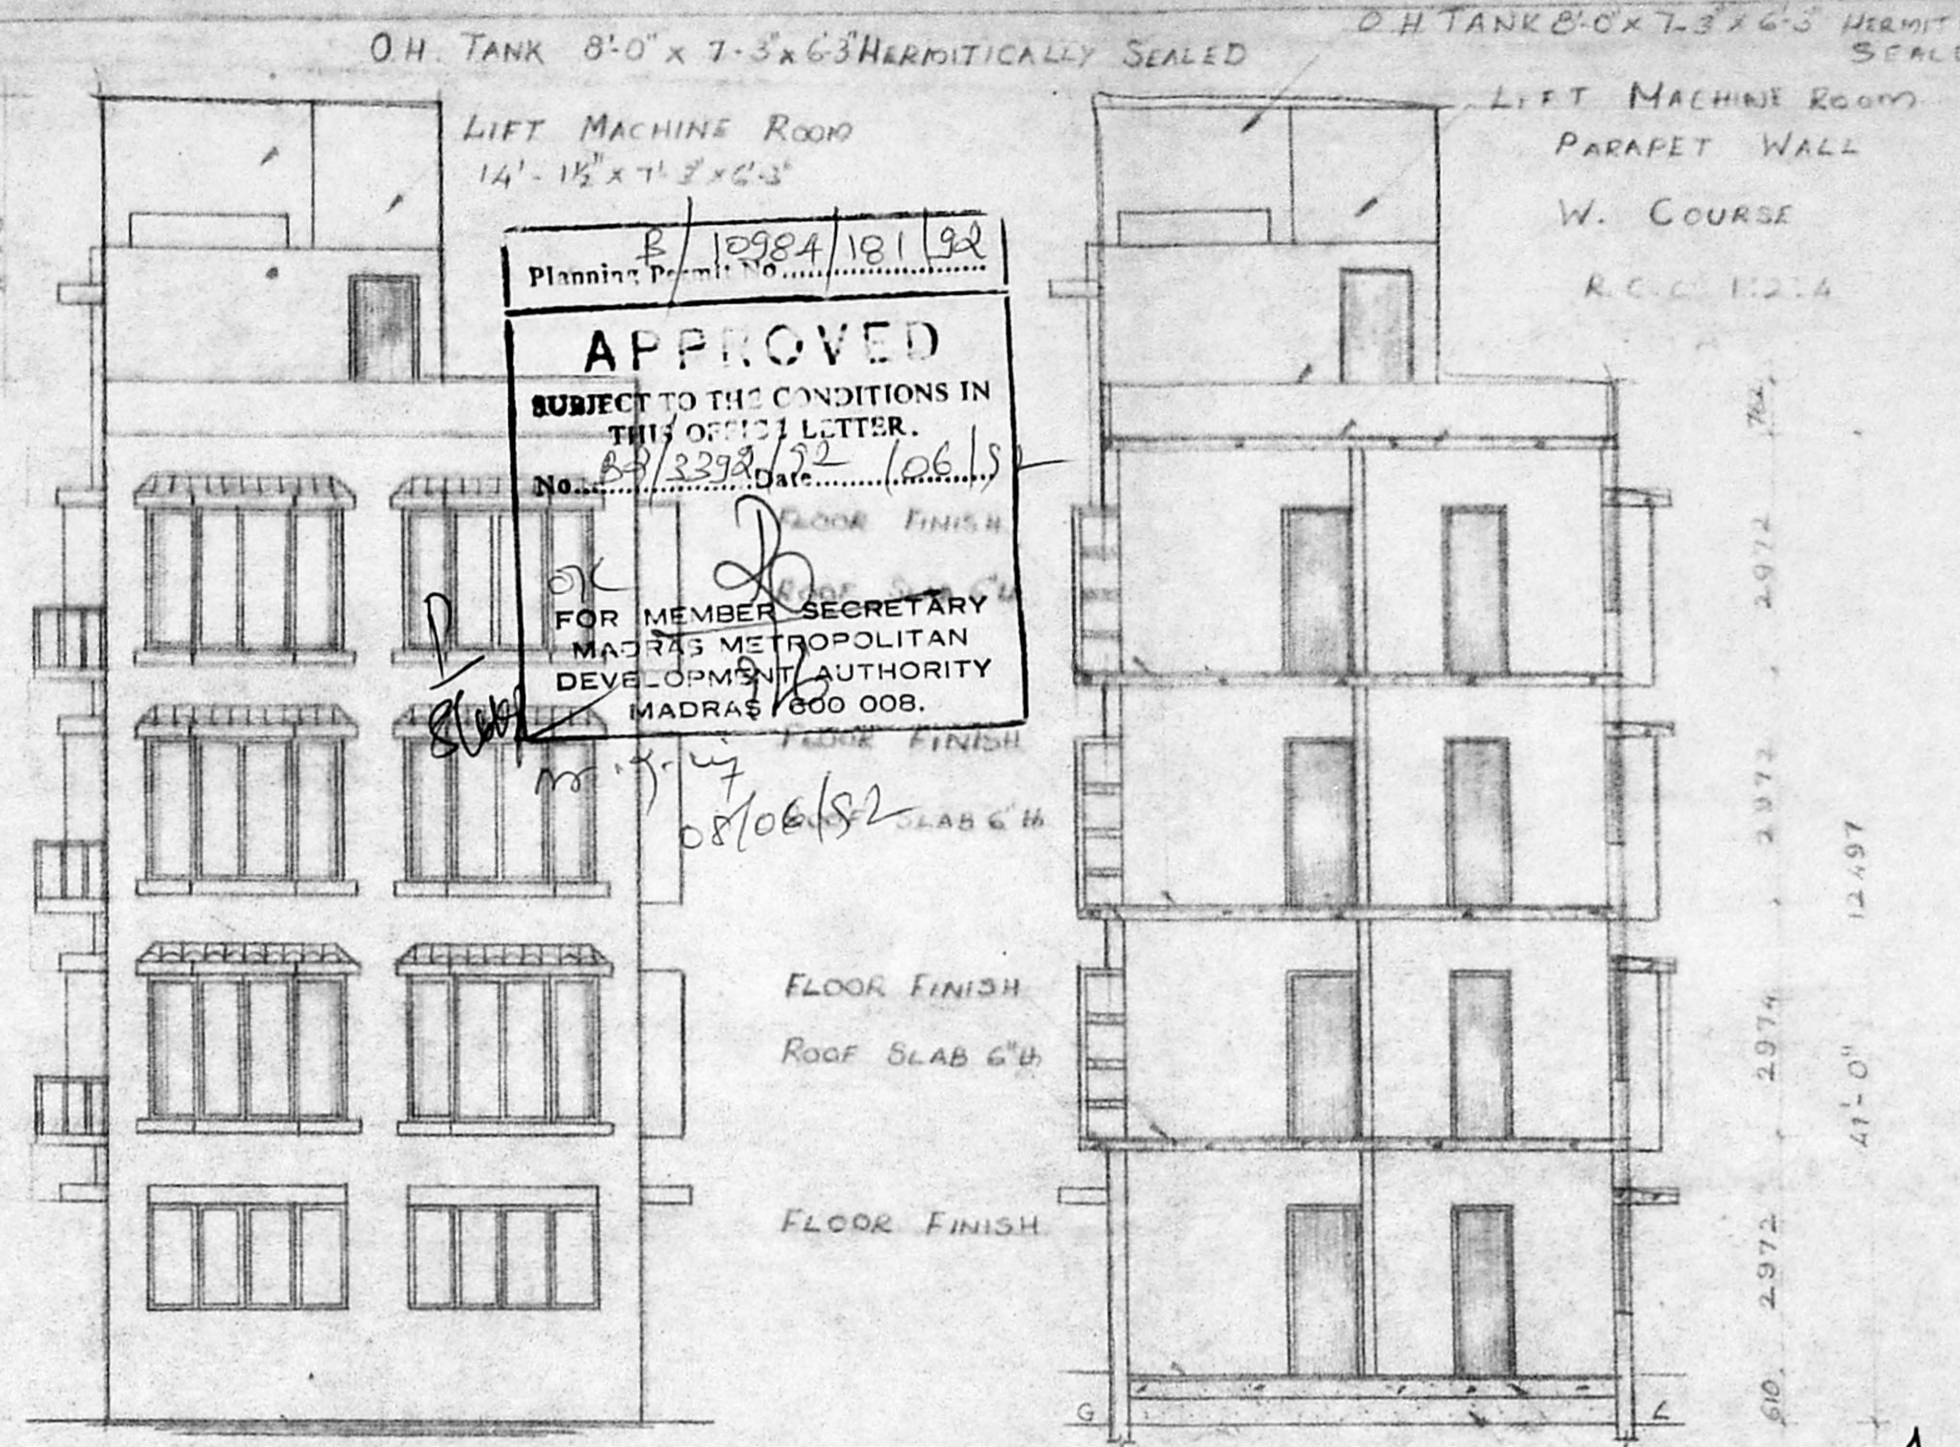 O.H. TANK 8'-0" x 7-3" x 6-3" HERMITICALLY SEALED
O.H TANK 8'-0" x 7-3" x 6-3" HERMIT
SEALE
LIFT MACHINE ROOM
14'-1½" x 7'-3" x 6'-3"
LIFT MACHINE ROOM
PARAPET WALL
W. COURSE
R.C.C. 1:2:4
Planning Permit No. B/10984/181/92
APPROVED
SUBJECT TO THE CONDITIONS IN
THIS OFFICE LETTER.
No. B2/3392/92 Date /06/92
OK
FOR MEMBER SECRETARY
MADRAS METROPOLITAN
DEVELOPMENT AUTHORITY
MADRAS 600 008.
08/06/92
FLOOR FINISH
ROOF SLAB 6"th
FLOOR FINISH
ROOF SLAB 6"th
FLOOR FINISH
ROOF SLAB 6"th
FLOOR FINISH
762
2972
2972
2974
2972
610
12497
41'-0"
G
L